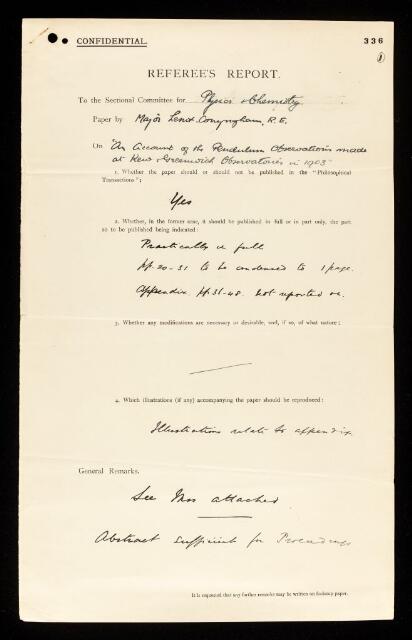 CONFIDENTIAL.
336
1
REFEREE'S REPORT.
To the Sectional Committee for Physics & Chemistry
Paper by Major Lenox Conyngham, R.E.
On "An Account of the Pendulum Observations made
at Kew & Greenwich Observatories in 1903"
1. Whether the paper should or should not be published in the "Philosophical
Transactions":
Yes
2. Whether, in the former case, it should be published in full or in part only, the part
so to be published being indicated:
Practically in full
pp. 20-31 to be condensed to 1 page.
Appendix. pp. 31-48. not reported on.
3. Whether any modifications are necessary or desirable, and, if so, of what nature:
4. Which illustrations (if any) accompanying the paper should be reproduced:
Illustrations relate to appendix.
General Remarks.
See attached
Abstract sufficient for Proceedings
It is requested that any further remarks may be written on foolscap paper.